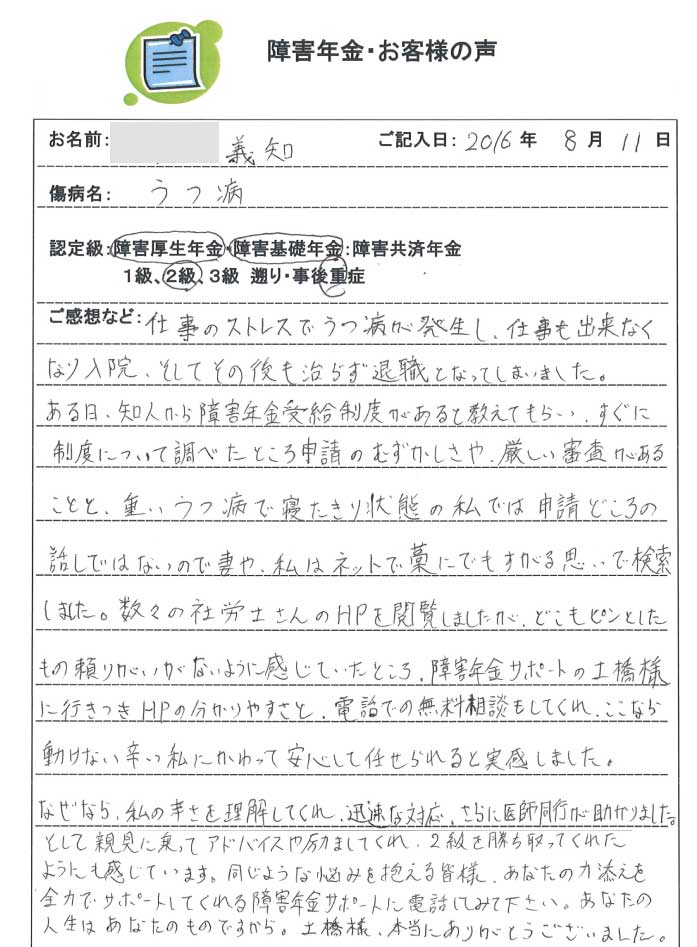 障害年金・お客様の声
お名前: 義知 ご記入日: 2016年 8月 11日
傷病名: うつ病
認定級:障害厚生年金・障害基礎年金:障害共済年金
1級、2級、3級 遡り・事後重症
ご感想など: 仕事のストレスでうつ病が発生し、仕事も出来なく
なり入院、そしてその後も治らず退職となってしまいました。
ある日、知人から障害年金受給制度があると教えてもらい、すぐに
制度について調べたところ申請のむずかしさや、厳しい審査がある
ことと、重いうつ病で寝たきり状態の私では申請どころの
話しではないので妻や、私はネットで藁にでもすがる思いで検索
しました。数々の社労士さんのHPを閲覧しましたが、どこもピンとした
もの頼りがいがないように感じていたところ、障害年金サポートの土橋様
に行きつきHPの分かりやすさと、電話での無料相談もしてくれ、ここなら
動けない辛い私にかわって安心して任せられると実感しました。
なぜなら、私の辛さを理解してくれ、迅速な対応、さらに医師同行が助かりました。
として親見に乗ってアドバイスや励ましてくれ、2級を勝ち取ってくれた
ようにも感じています。同じような悩みを抱える皆様、あなたの力添えを
全力でサポートしてくれる障害年金サポートに電話してみて下さい。あなたの
人生はあなたのものですから。土橋様、本当にありがとうございました。